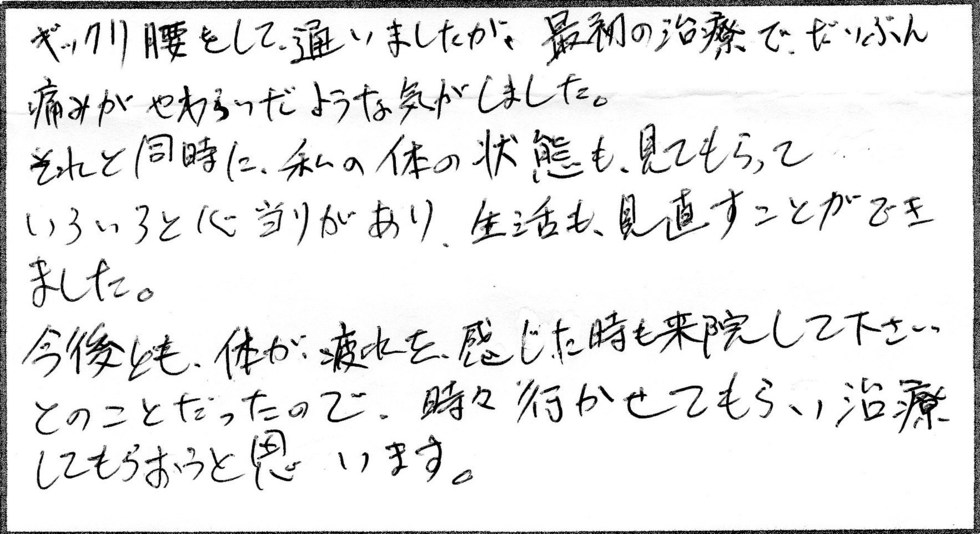 ギックリ腰をして、通いましたが、最初の治療で、だいぶん
痛みがやわらいだような気がしました。
それと同時に、私の体の状態も、見てもらって
いろいろと心当りがあり、生活も、見直すことができ
ました。
今後とも、体が、疲れを、感じた時も来院して下さい
とのことだったので、時々行かせてもらい治療
してもらおうと思います。